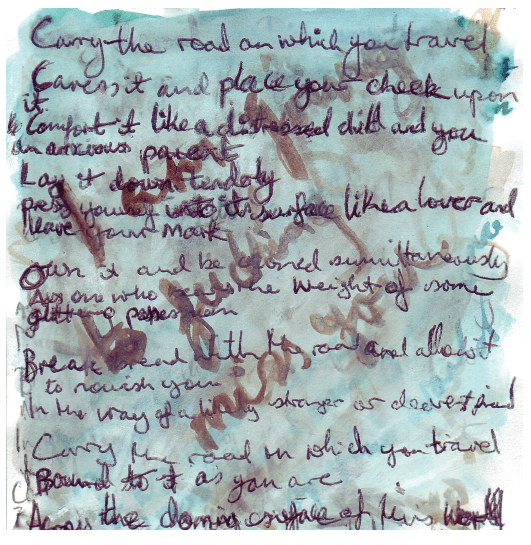 Carry the road on which you travel
Caress it and place your cheek upon
it
Comfort it like a distressed child and you
an anxious parent
Lay it down tenderly
press yourself into its surface like a lover and
leave your mark
Own it and be owned simultaneously
As one who feels the weight of some
glittering possession
Break bread with this road and allow it
to nourish you
In the way of a kindly stranger or dearest friend
Carry the road on which you travel
Bound to it as you are
Across the surface of this world